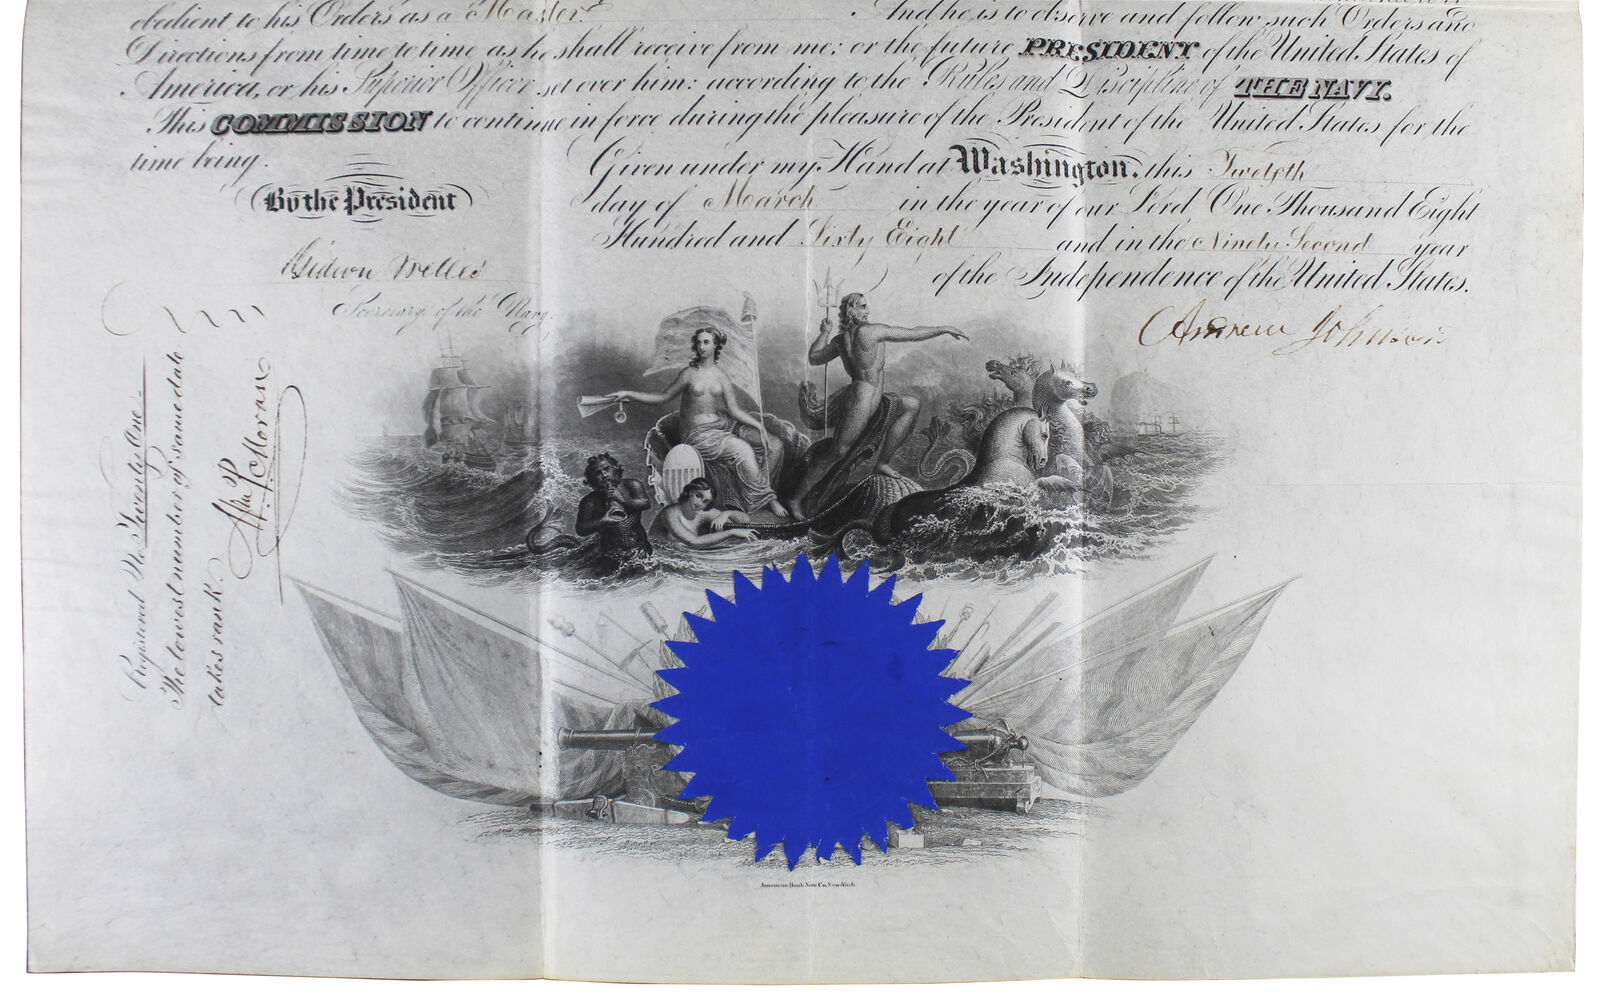 obedient to his Orders as a Master. And he is to observe and follow such Orders and
Directions from time to time as he shall receive from me; or the future PRESIDENT of the United States of
America, or his Superior Officer set over him: according to the Rules and Discipline of THE NAVY.
This COMMISSION to continue in force during the pleasure of the President of the United States for the
time being.
Given under my Hand at Washington, this Twelfth
day of March in the year of our Lord One Thousand Eight
Hundred and Sixty Eight and in the Ninety Second year
of the Independence of the United States.
By the President
Gideon Welles
Secretary of the Navy.
Andrew Johnson
Registered No Twenty One
The lowest number of same date
takes rank.
Moran
American Bank Note Co. New-York